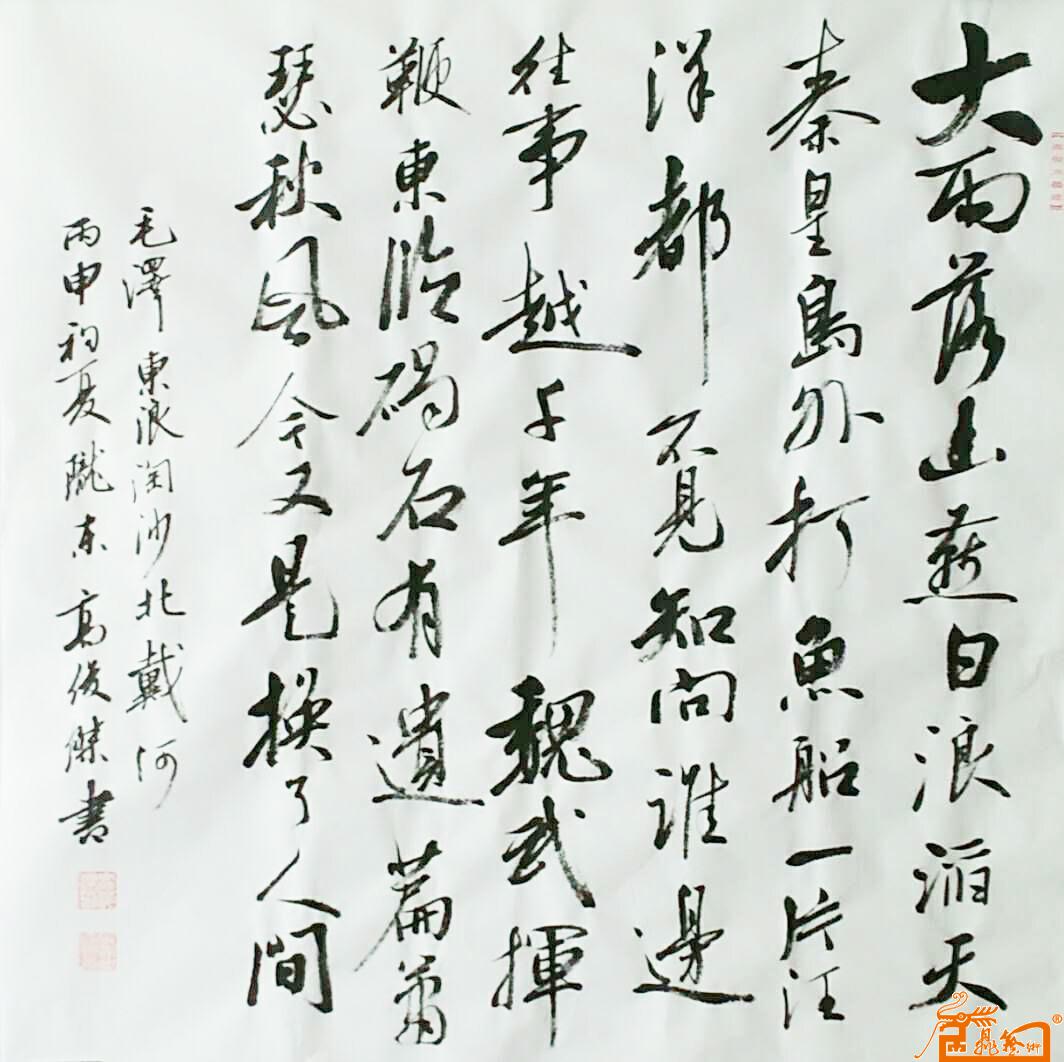 大雨落幽燕白浪滔天
秦皇島外打魚船一片汪
洋都不見知向誰邊
往事越千年魏武揮
鞭東臨碣石有遺篇蕭
瑟秋風今又是換了人間
毛澤東浪淘沙北戴河
丙申初夏隴東高俊傑書